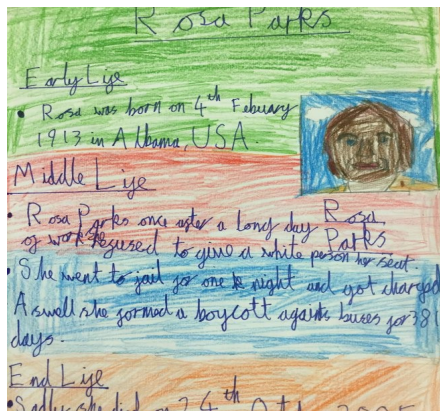 Rosa Parks
Early Life
• Rosa was born on 4th Febuary
1913 in Albama, USA.
Middle Life
• Rosa Parks once after a long day
of work she refused to give a white person her seat.
Rosa
Parks
• She went to jail for one night and got charged
Aswell she formed a boycott againts buses for 381
days.
End Life
• Sadly she died on 24th